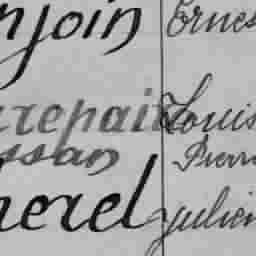 njoin Ernes
repair Louis
ssan Pierr
herel Julien